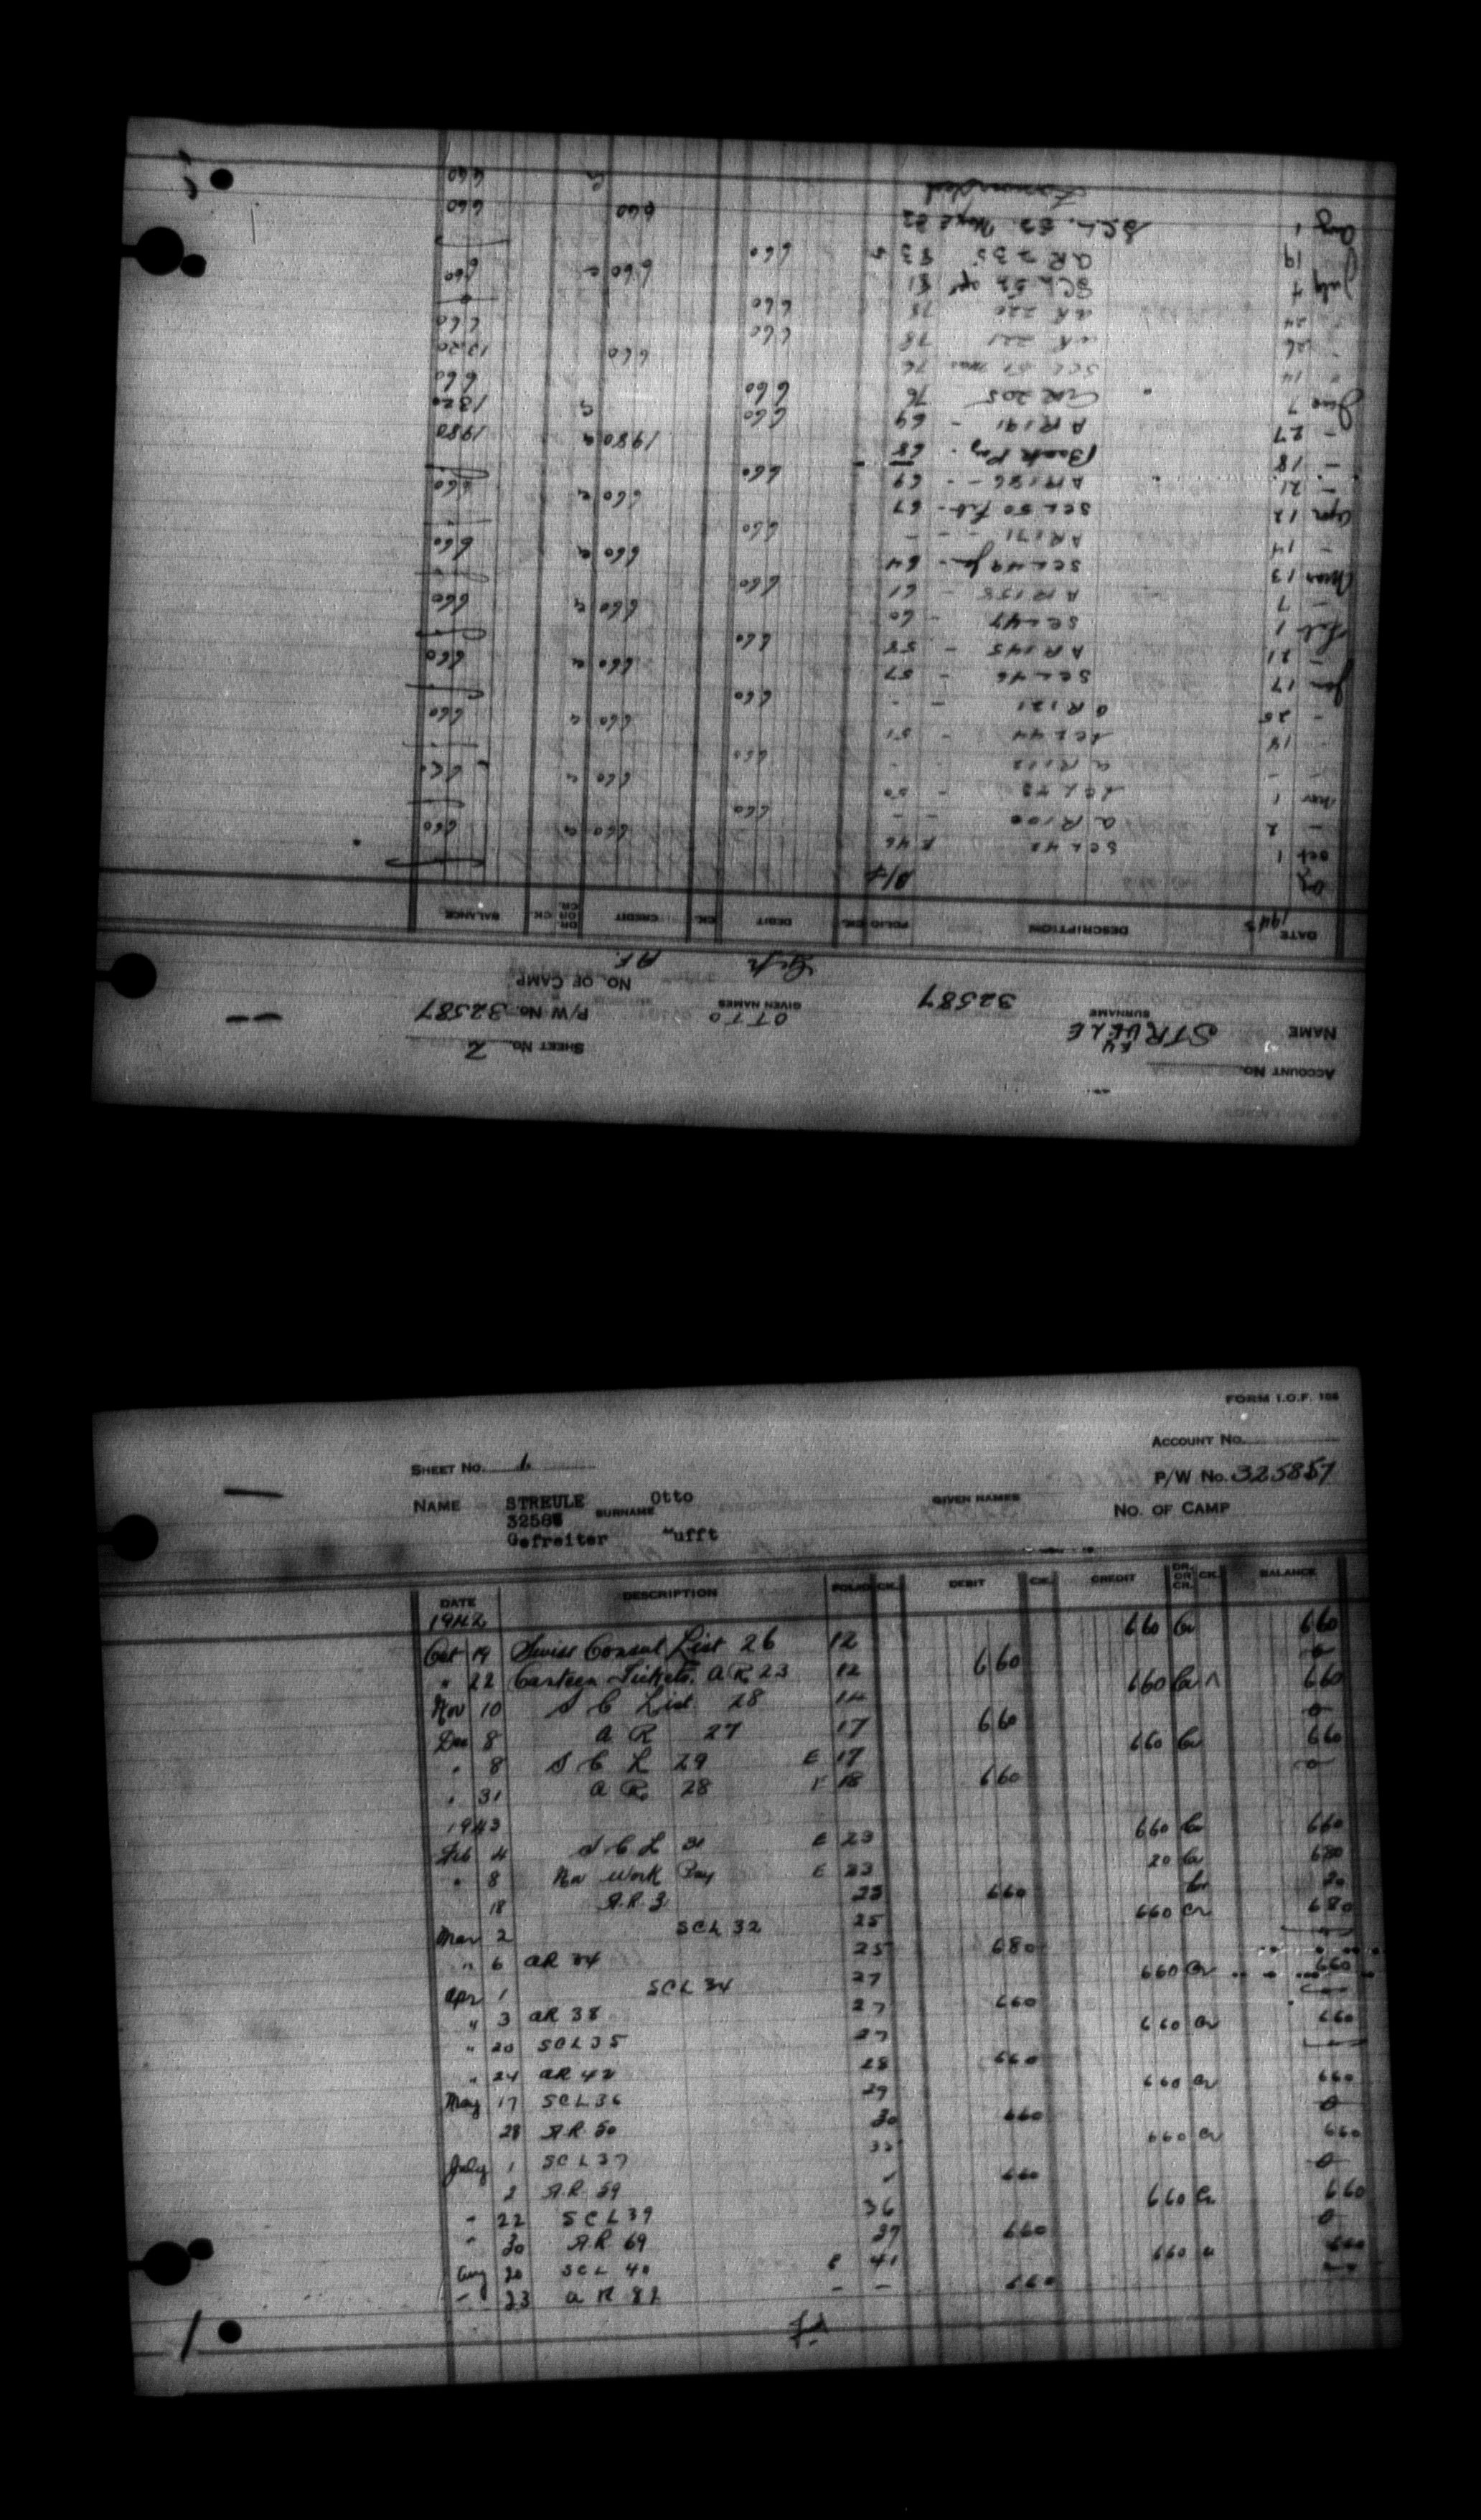 ACCOUNT No.
SHEET No. 2
NAME STREULE OTTO P/W No. 32587
SURNAME GIVEN NAMES
32587 Gefr NO. OF CAMP
DATE DESCRIPTION FOLIO CK. DEBIT CK. CREDIT DR. OR CR. CK. BALANCE
Oct 1 SCL 42 E 46 660 660
2 AR 100 - - 660
Nov 1 SCL 43 - 50 660
AR 112 660
18 SCL 44 - 51 660 660
25 AR 121 - - 660
Jan 17 SCL 46 - 57 660 660
21 AR 145 - 58 660
Feb 1 SCL 47 - 60 660 660
7 AR 158 - 61 660
Mar 13 SCL 49 Jan - 64 660 660
14 AR 171 - - - 660
Apr 12 SCL 50 Feb - 67 660 660
21 AR 186 - - 69 660
18 Back Pay - 68 1980 1980
27 AR 191 - 69 660 1320
June 7 AR 205 76 660 660
14 SCL 51 Mar 76 660 1320
26 AR 221 78 660 660
24 AR 220 78 660
July 4 SCL 52 Apr 81 660 660
19 AR 235 83 660
Aug 1 SCL 53 May 82 660 660
Forwarded 660
FORM I.O.F. 108
ACCOUNT No.
SHEET No. 1
P/W No. 32587
NAME STREULE Otto GIVEN NAMES
32587 SURNAME NO. OF CAMP
Gefreiter Lufft
DATE DESCRIPTION FOLIO CK. DEBIT CK. CREDIT DR. OR CR. CK. BALANCE
1942
Oct 19 Swiss Consul List 26 12 660 Cr 660
" 22 Canteen Tickets. A R 23 12 660 0
Nov 10 S C List 28 14 660 Cr 660
Dec 8 A R 27 17 660 0
" 8 S C L 29 E 17 660 Cr 660
" 31 A R 28 E 18 660 0
1943
Feb 4 S C L 31 E 23 660 Cr 660
" 8 Nov Work Pay E 23 20 Cr 680
18 A.R. 3 23 660 Cr 20
Mar 2 SCL 32 25 660 Cr 680
" 6 AR 34 25 680
Apr 1 SCL 34 27 660 Cr 660
" 3 AR 38 27 660
" 20 SCL 35 27 660 Cr 660
" 24 AR 42 28 660
May 17 SCL 36 29 660 Cr 660
28 A.R. 50 30 660 0
July 1 SCL 37 33 660 Cr 660
2 A.R. 59 660 0
" 22 SCL 39 36 660 Cr 660
" 30 A.R. 69 37 660 0
Aug 20 SCL 40 E 41 660 660
" 23 A R 82 - - 660